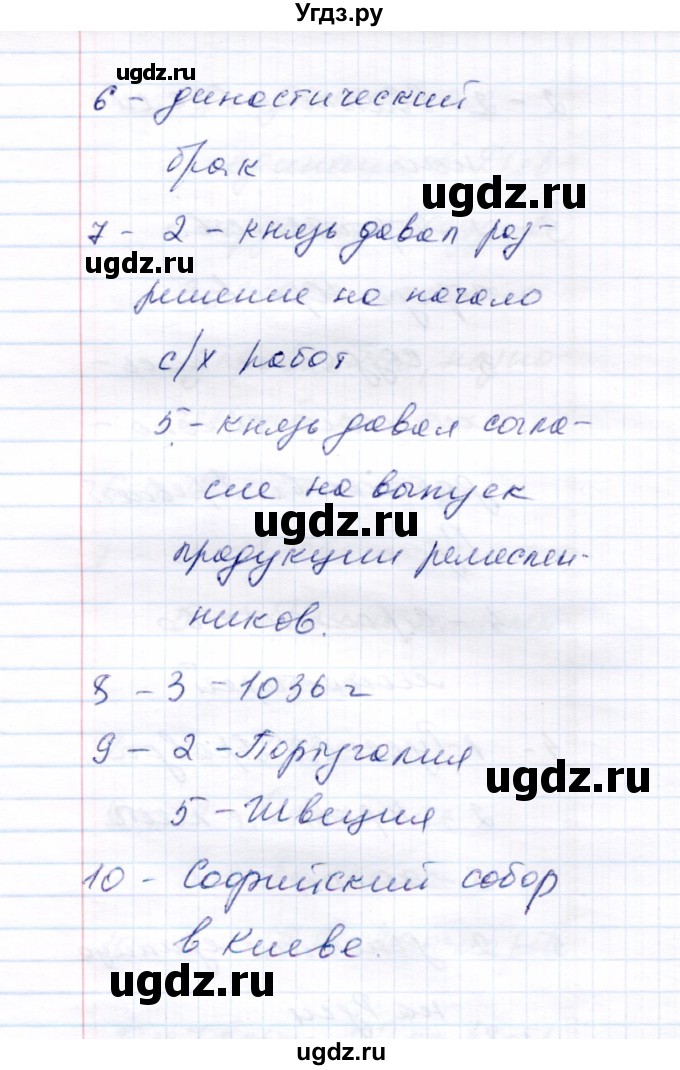 Угдз.ру
ugdz.ru
6 - династический
брак
ugdz.ru
7 - 2 - князь давал раз-
ugdz.ru
решение на начало
с/х работ
5 - князь давал согла-
сие на выпуск
ugdz.ru
продукции ремеслен-
ников.
8 - 3 - 1036 г
9 - 2 - Португалия
ugdz.ru
5 - Швеция
10 - Софийский собор
в Киеве.
ugdz.ru
ugdz.ru